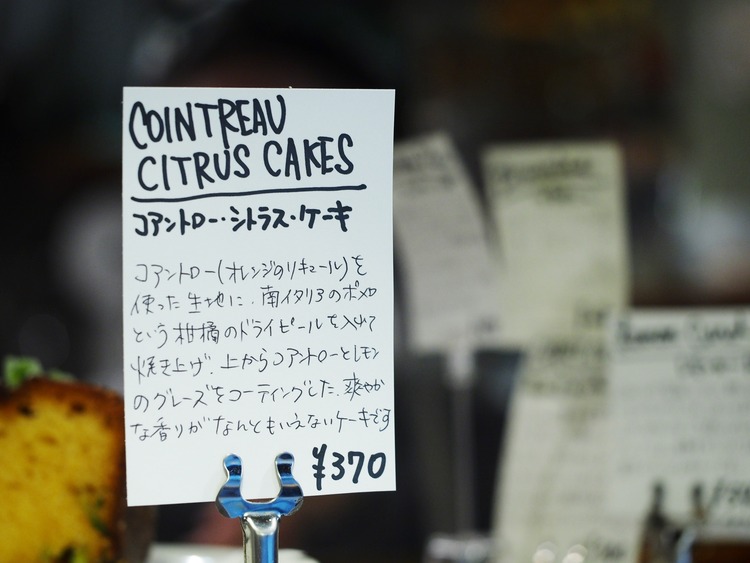 COINTREAU
CITRUS CAKES
コアントロー・シトラス・ケーキ
コアントロー(オレンジのリキュール)を
使った生地に、南イタリアのポメロ
という柑橘のドライピールを入れて
焼き上げ、上からコアントローとレモン
のグレーズをコーティングした、爽やか
な香りがなんともいえないケーキです
¥370